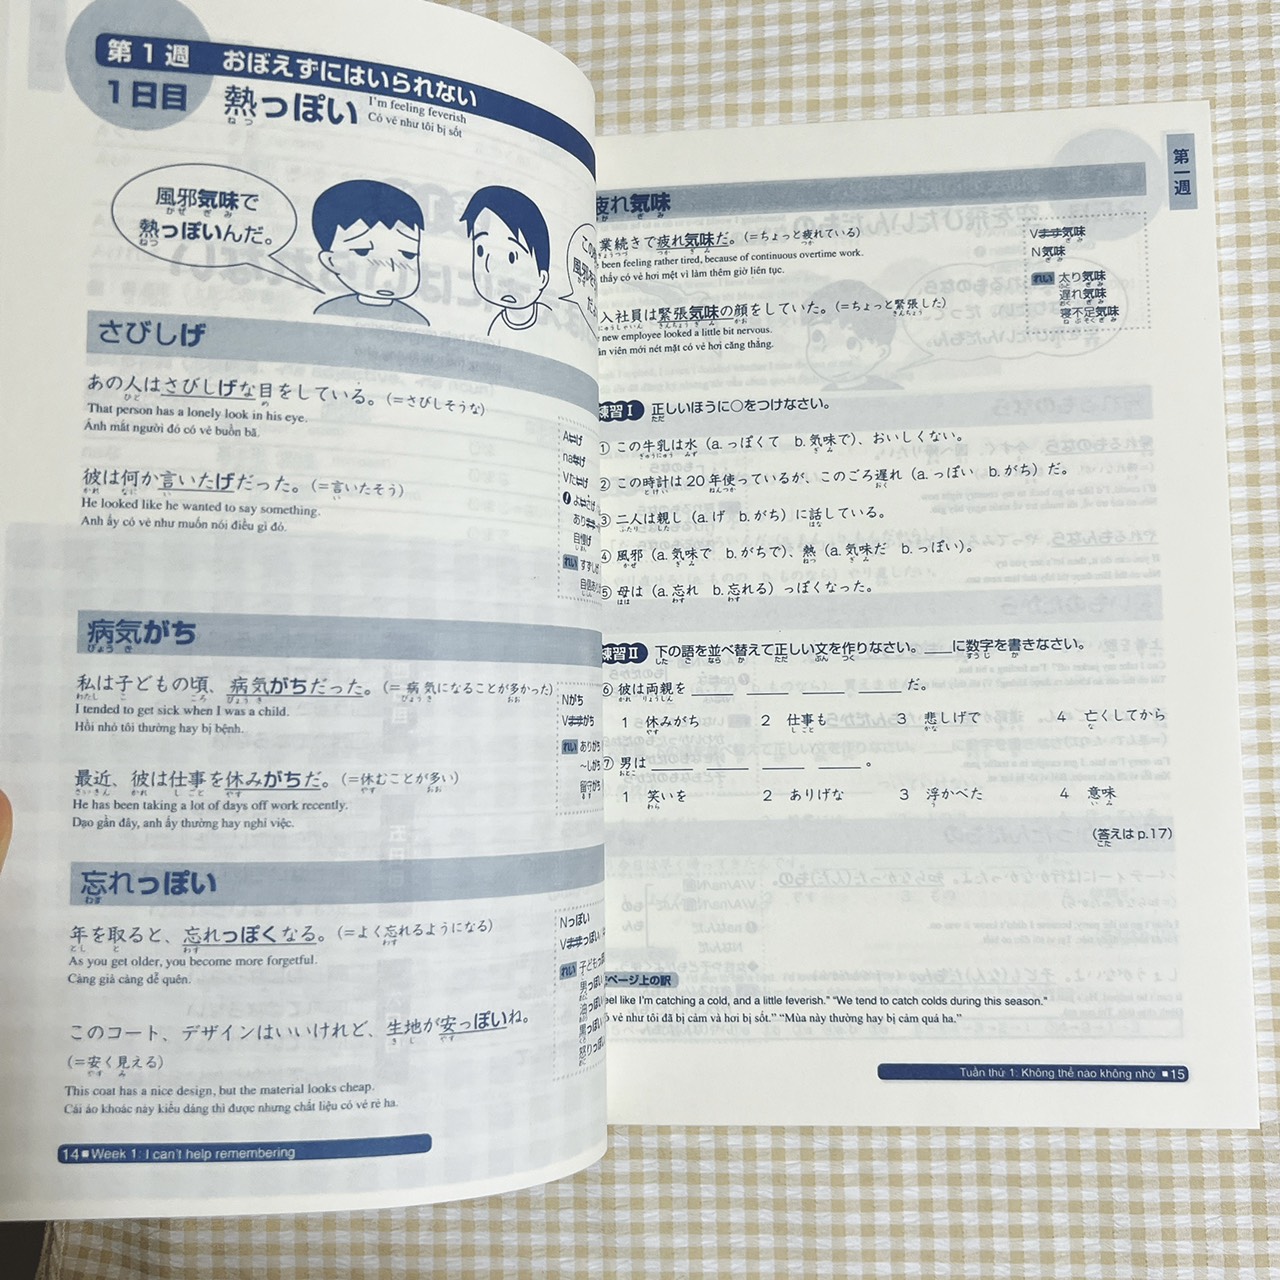 第1週 おぼえずにはいられない
1日目 熱っぽい
I'm feeling feverish
Có vẻ như tôi bị sốt
風邪気味で
熱っぽいんだ。
さびしげ
あの人はさびしげな目をしている。(=さびしそうな)
That person has a lonely look in his eye.
Ánh mắt người đó có vẻ buồn bã.
彼は何か言いたげだった。(=言いたそう)
He looked like he wanted to say something.
Anh ấy có vẻ như muốn nói điều gì đó.
病気がち
私は子どもの頃、病気がちだった。(=病気になることが多かった)
I tended to get sick when I was a child.
Hồi nhỏ tôi thường hay bị bệnh.
最近、彼は仕事を休みがちだ。(=休むことが多い)
He has been taking a lot of days off work recently.
Dạo gần đây, anh ấy thường hay nghỉ việc.
Nがち
Vますがち
れい ありがち
～しがち
留守がち
忘れっぽい
年を取ると、忘れっぽくなる。(=よく忘れるようになる)
As you get older, you become more forgetful.
Càng già càng dễ quên.
このコート、デザインはいいけれど、生地が安っぽいね。
(=安く見える)
This coat has a nice design, but the material looks cheap.
Cái áo khoác này kiểu dáng thì được nhưng chất liệu có vẻ rẻ ha.
Nっぽい
Vますっぽい
れい 子どもっぽ
男っぽい
油っぽい
黒っぽい
怒りっぽい
14 ■ Week 1: I can't help remembering
第一週
疲れ気味
業続きで疲れ気味だ。(=ちょっと疲れている)
been feeling rather tired, because of continuous overtime work.
thấy có vẻ hơi mệt vì làm thêm giờ liên tục.
入社員は緊張気味の顔をしていた。(=ちょっと緊張した)
new employee looked a little bit nervous.
viên mới nét mặt có vẻ hơi căng thẳng.
Vます気味
N気味
れい 太り気味
遅れ気味
寝不足気味
練習Ⅰ 正しいほうに○をつけなさい。
① この牛乳は水(a.っぽくて b.気味で)、おいしくない。
② この時計は20年使っているが、このごろ遅れ(a.っぽい b.がち)だ。
③ 二人は親し(a.げ b.がち)に話している。
④ 風邪(a.気味で b.がちで)、熱(a.気味だ b.っぽい)。
⑤ 母は(a.忘れ b.忘れる)っぽくなった。
練習Ⅱ 下の語を並べ替えて正しい文を作りなさい。___に数字を書きなさい。
⑥ 彼は両親を ____ ____ ____ ____ だ。
1 休みがち 2 仕事も 3 悲しげで 4 亡くしてから
⑦ 男は ____ ____ ____ ____ 。
1 笑いを 2 ありげな 3 浮かべた 4 意味
(答えはp.17)
ページ上の訳
feel like I'm catching a cold, and a little feverish." "We tend to catch colds during this season."
vẻ như tôi đã bị cảm và hơi bị sốt." "Mùa này thường hay bị cảm quá ha."
Tuần thứ 1: Không thể nào không nhớ ■ 15